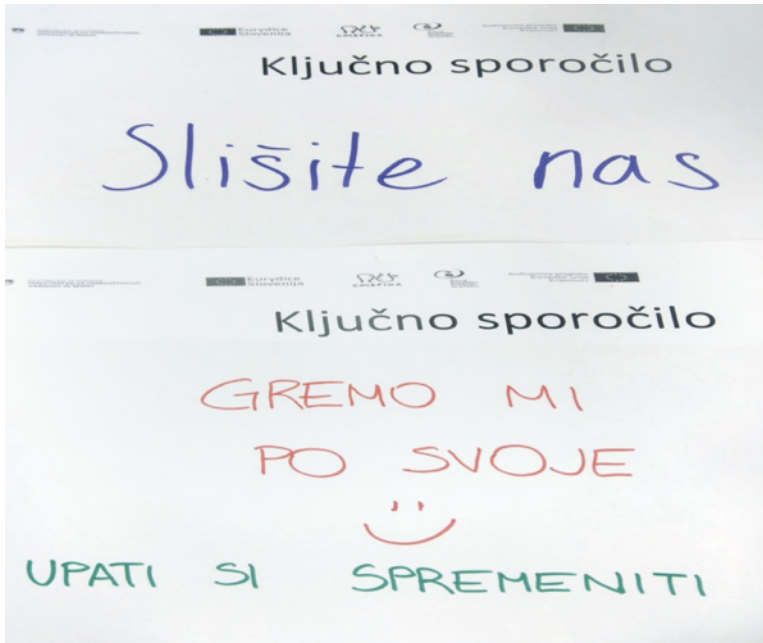 Eurydice
Slovenija
Ključno sporočilo
Slišite nas
Eurydice
Slovenija
Ključno sporočilo
GREMO MI
PO SVOJE
UPATI SI SPREMENITI